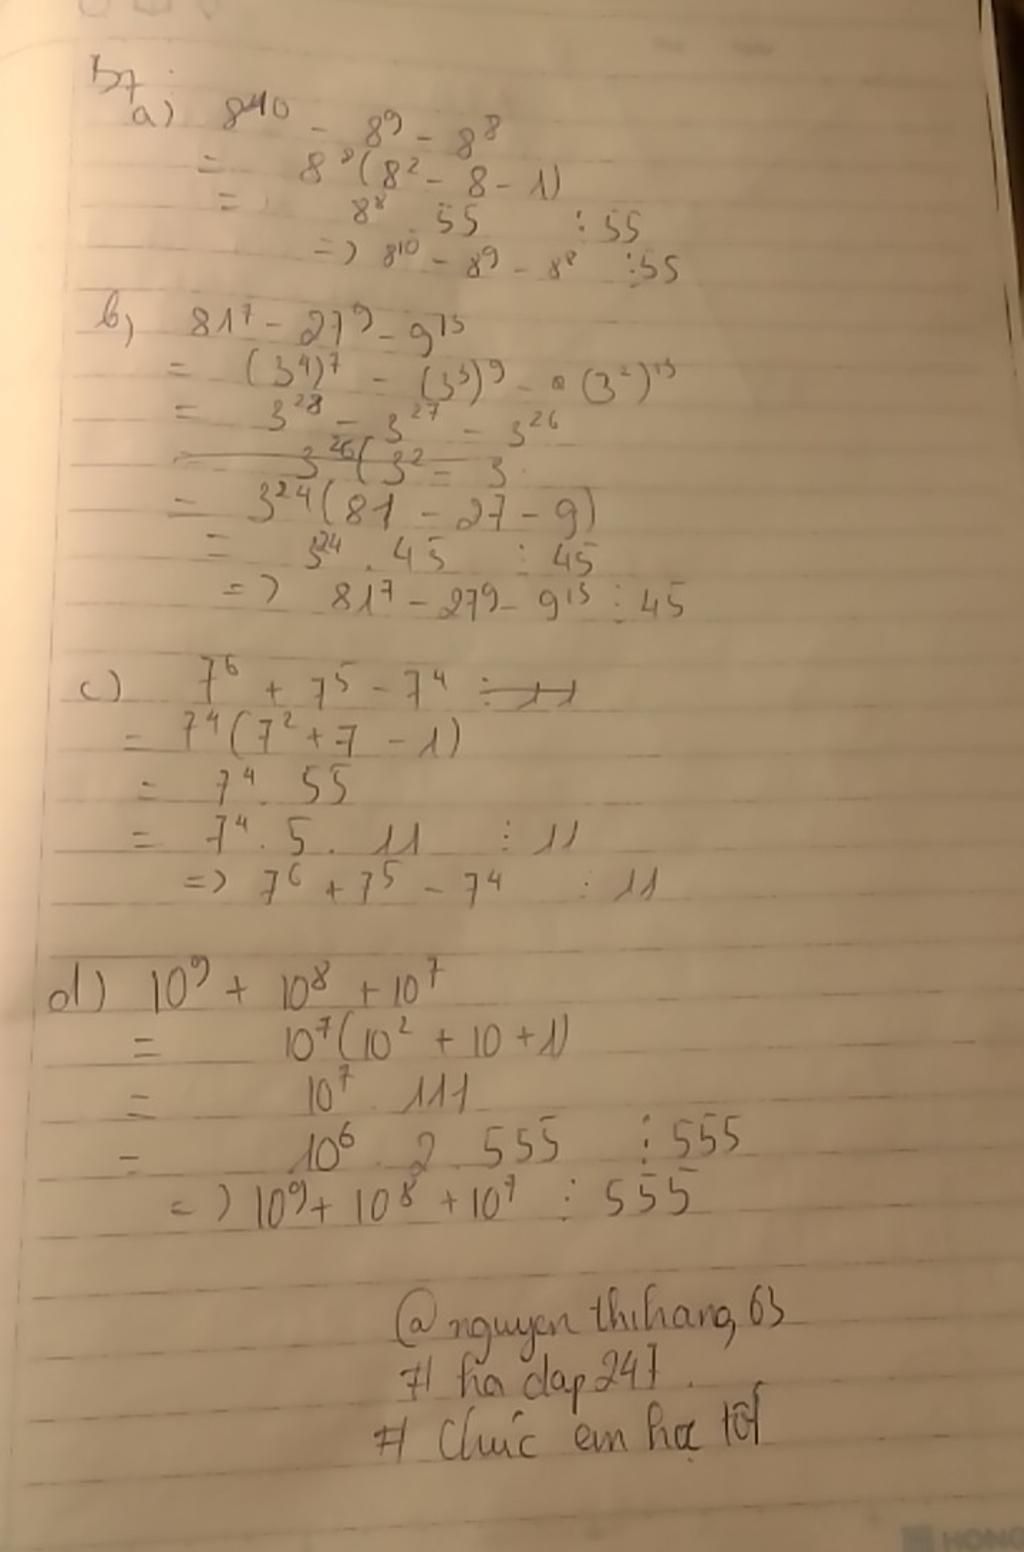 B7:
a) 8^10 - 8^9 - 8^8
= 8^8(8^2 - 8 - 1)
= 8^8 . 55 ⋮ 55
=> 8^10 - 8^9 - 8^8 ⋮ 55
b) 81^7 - 27^9 - 9^13
= (3^4)^7 - (3^3)^9 - (3^2)^13
= 3^28 - 3^27 - 3^26
3^26(3^2 - 3
= 3^24(81 - 27 - 9)
= 3^24 . 45 ⋮ 45
=> 81^7 - 27^9 - 9^13 ⋮ 45
c) 7^6 + 7^5 - 7^4 ⋮ 11
= 7^4(7^2 + 7 - 1)
= 7^4 . 55
= 7^4 . 5 . 11 ⋮ 11
=> 7^6 + 7^5 - 7^4 ⋮ 11
d) 10^9 + 10^8 + 10^7
= 10^7(10^2 + 10 + 1)
= 10^7 . 111
= 10^6 . 2 . 555 ⋮ 555
=> 10^9 + 10^8 + 10^7 ⋮ 555
@nguyenthihang63
# hoidap247
# Chúc em học tốt
HONG